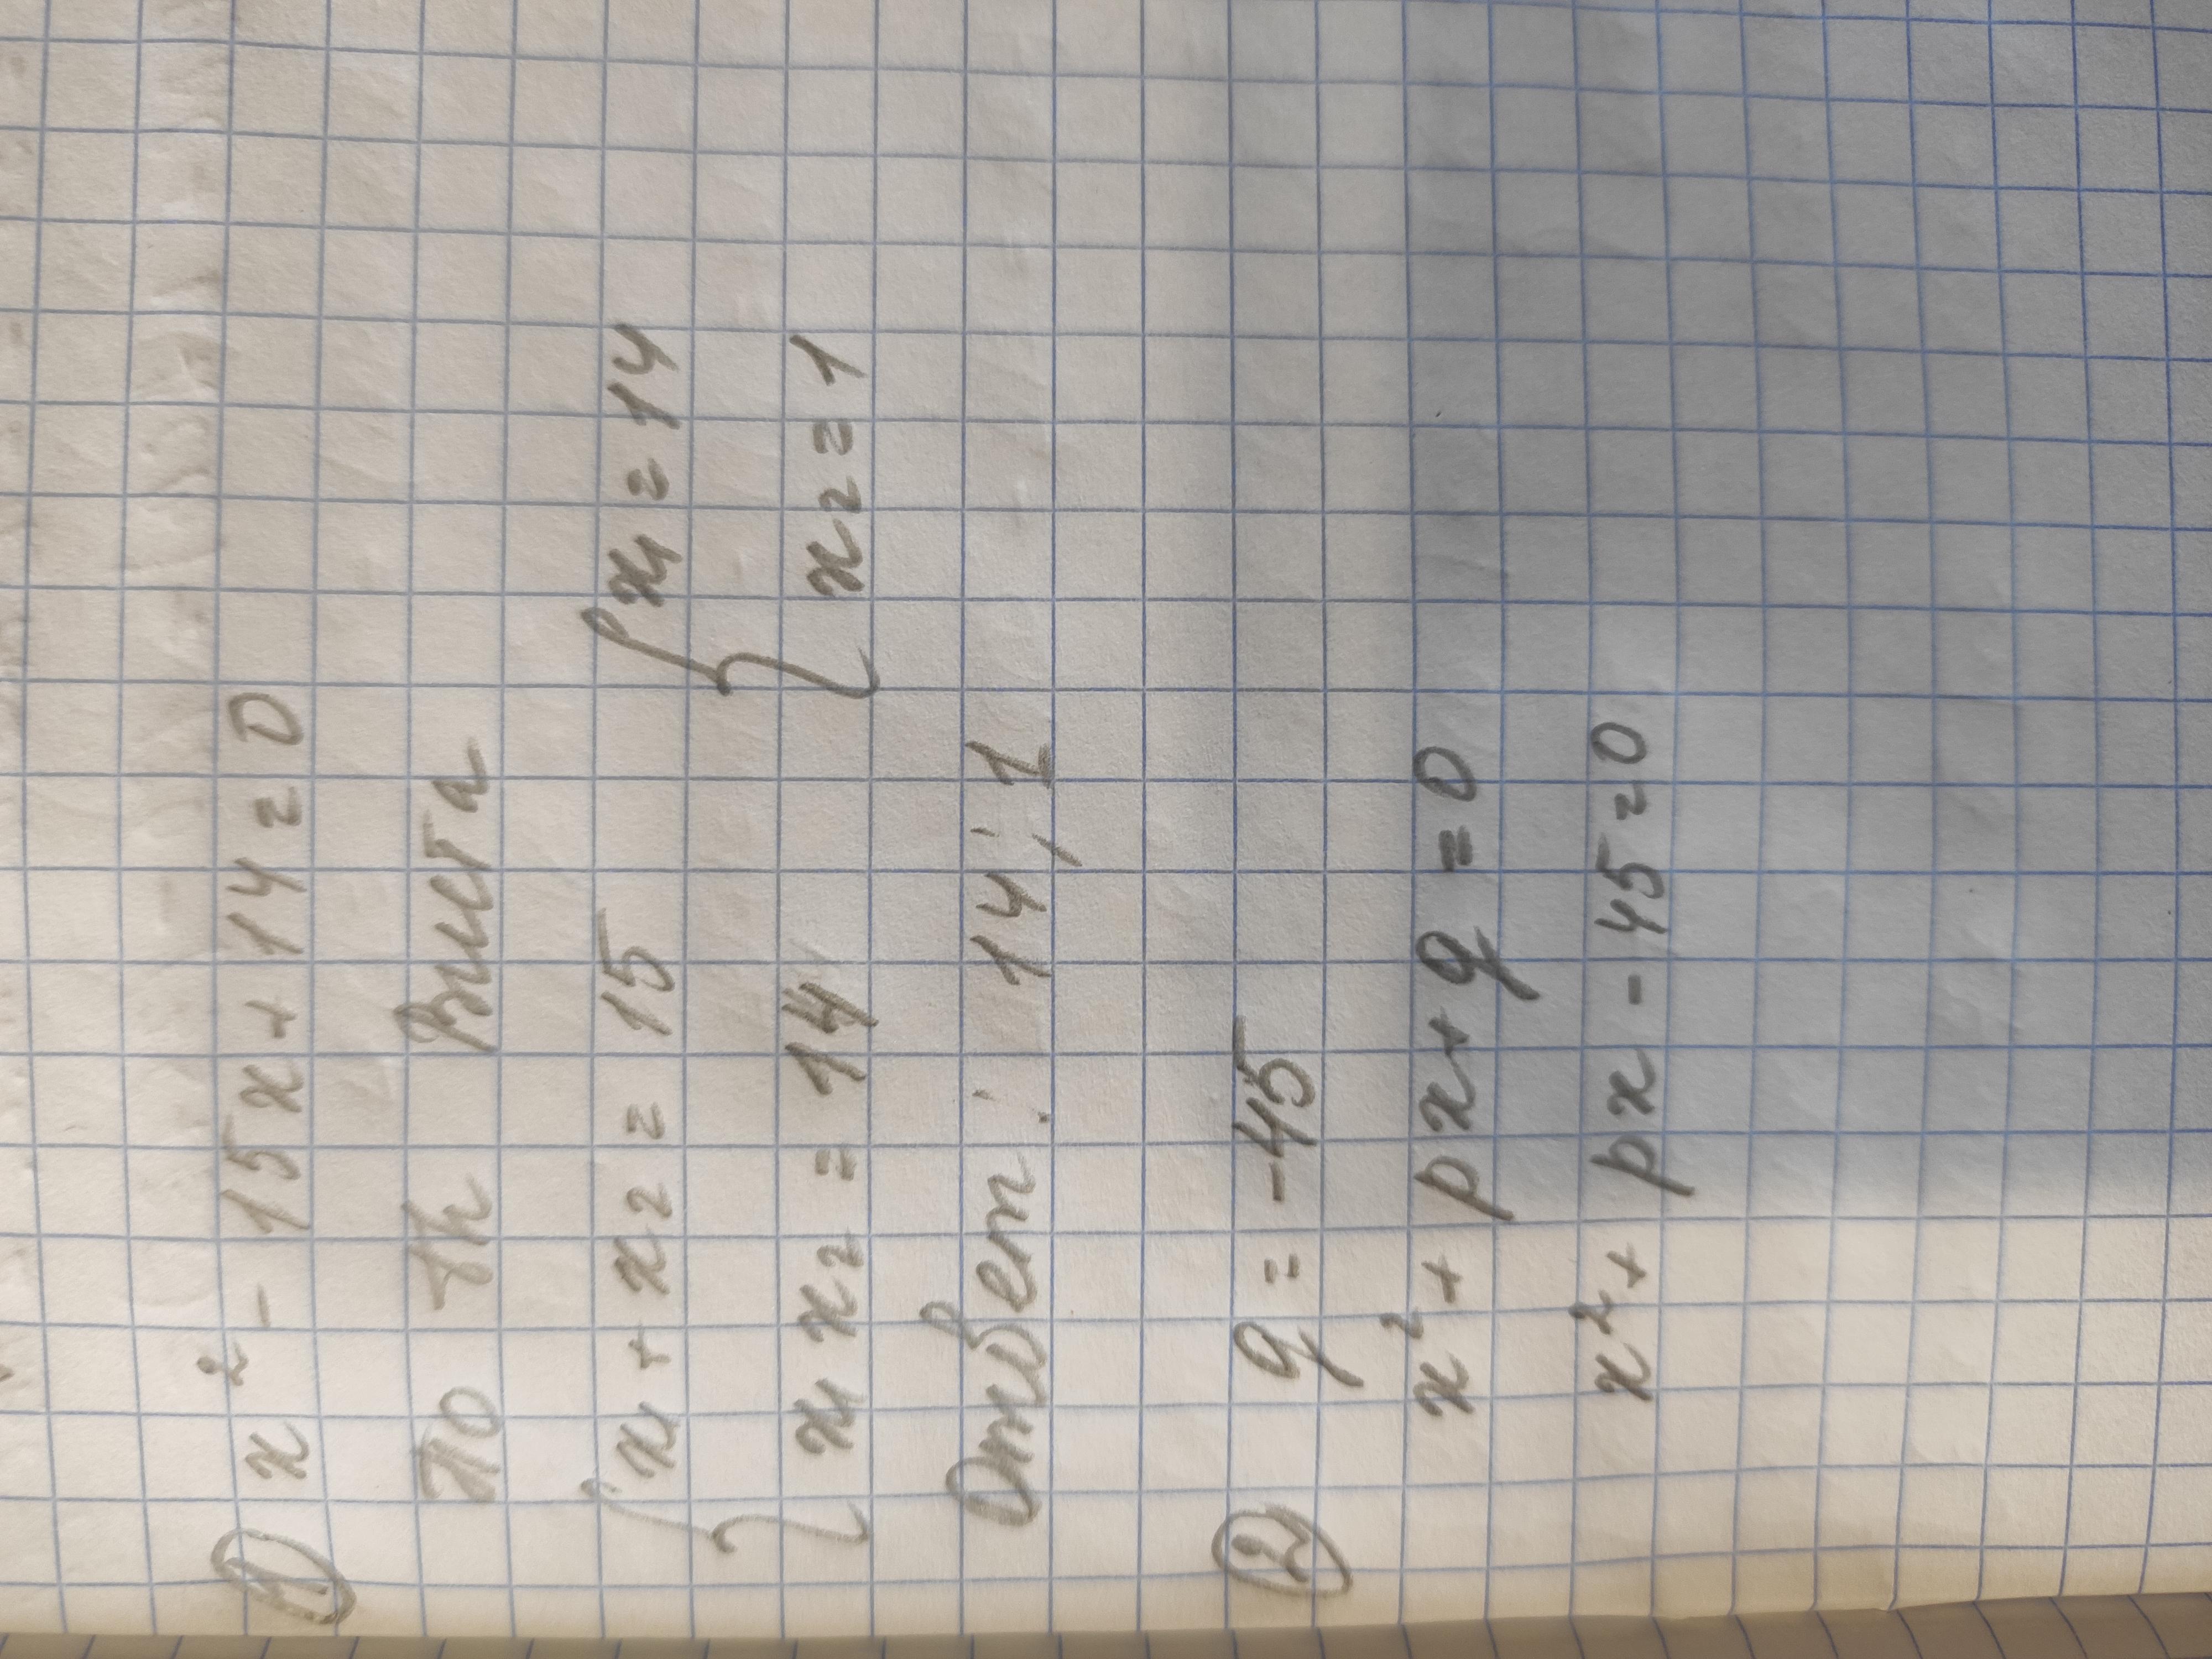 ① x² - 15x + 14 = 0
по th Виета
{ x₁ + x₂ = 15 { x₁ = 14
x₁ x₂ = 14 x₂ = 1
Ответ: 14; 1
② q = -45
x² + px + q = 0
x² + px - 45 = 0